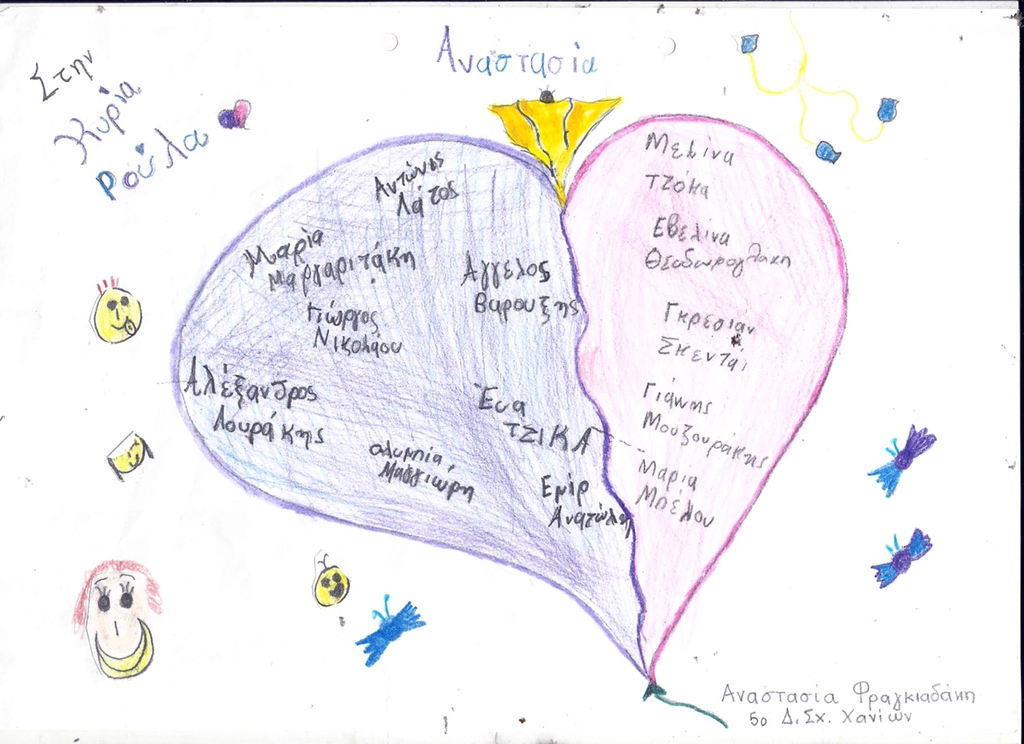 Στην
Κυρία
Ρούλα
Αναστασία
Αντώνης
Λάτος
Μαρία
Μαργαριτάκη
Γιώργος
Νικολάου
Άγγελος
Βαρουξης
Αλέξανδρος
Λουράκης
Έυα
ΤΖΙΚΑ
ολυμπία
Μαγγιώρη
Εμίρ
Ανατώλη
Μελίνα
τζόκα
Εβελίνα
Θεοδωρογλάκη
Γκρεσιάν
Σκεντάι
Γιάννης
Μουζουράκης
Μαρια
Μπέλου
Αναστασία Φραγκιαδάκη
5ο Δ.Σχ. Χανίων